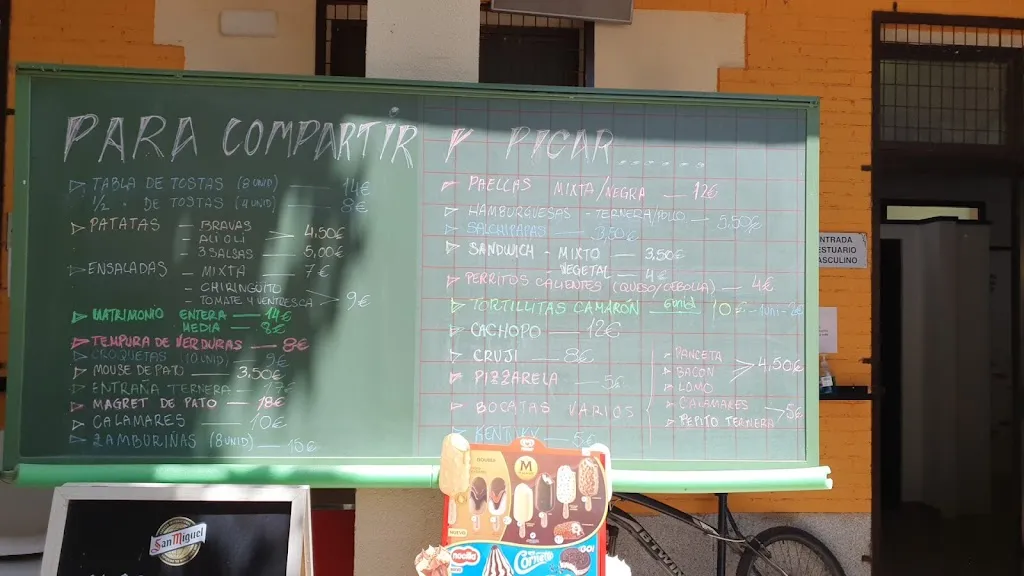 PARA COMPARTIR Y PICAR......
TABLA DE TOSTAS (8 UNID) — 14€
1/2 " DE TOSTAS (4 UNID) — 8€
PATATAS — BRAVAS
— ALI OLI > 4,50€
— 3 SALSAS — 5,00€
ENSALADAS — MIXTA — 7€
— CHIRINGUITO
— TOMATE Y VENTRESCA > 9€
MATRIMONIO ENTERA — 14€
MEDIA — 8€
TEMPURA DE VERDURAS — 8€
CROQUETAS (10 UNID) — 9€
MOUSE DE PATO — 3,50€
ENTRAÑA TERNERA —
MAGRET DE PATO — 18€
CALAMARES — 10€
ZAMBURIÑAS (8 UNID) — 15€
PAELLAS MIXTA/NEGRA — 12€
HAMBURGUESAS - TERNERA/POLLO — 5,50€
SALCHIPAPAS — 3,50€
SANDWICH — MIXTO — 3,50€
— VEGETAL — 4€
PERRITOS CALIENTES (QUESO/CEBOLLA) — 4€
TORTILLITAS CAMARÓN 6 unid 10€
CACHOPO — 12€
CRUJI — 8€
PIZZARELA — 5€
BOCATAS VARIOS
— PANCETA
— BACON > 4,50€
— LOMO
— CALAMARES > 5€
— PEPITO TERNERA
KENTUKY — 5€
ENTRADA
VESTUARIO
MASCULINO
San Miguel
M
nocilla
Cornetto
OREO